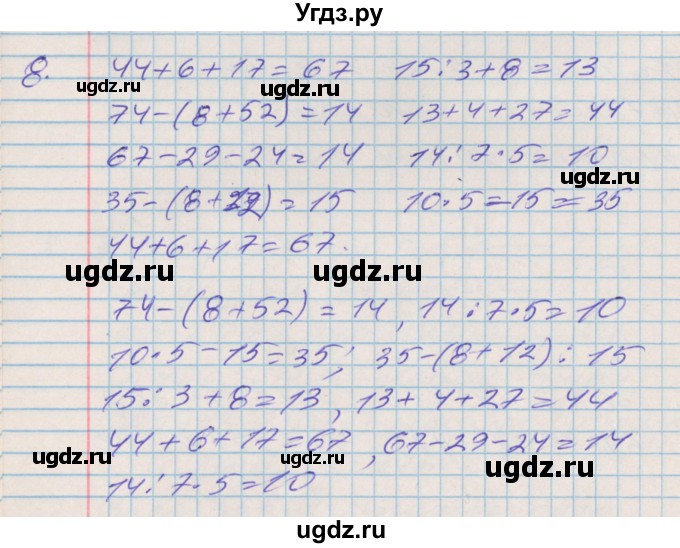 Угдз.ру
8. 44+6+17=67 15:3+8=13
ugdz.ru ugdz.ru
74-(8+52)=14 13+4+27=44
67-29-24=14 14:7·5=10
ugdz.ru
35-(8+12)=15 10·5=15=35
44+6+17=67.
ugdz.ru
74-(8+52)=14, 14:7·5=10
ugdz.ru
10·5-15=35; 35-(8+12): 15
15:3+8=13, 13+4+27=44
44+6+17=67, 67-29-24=14
ugdz.ru ugdz.ru
14:7·5=10
ugdz.ru